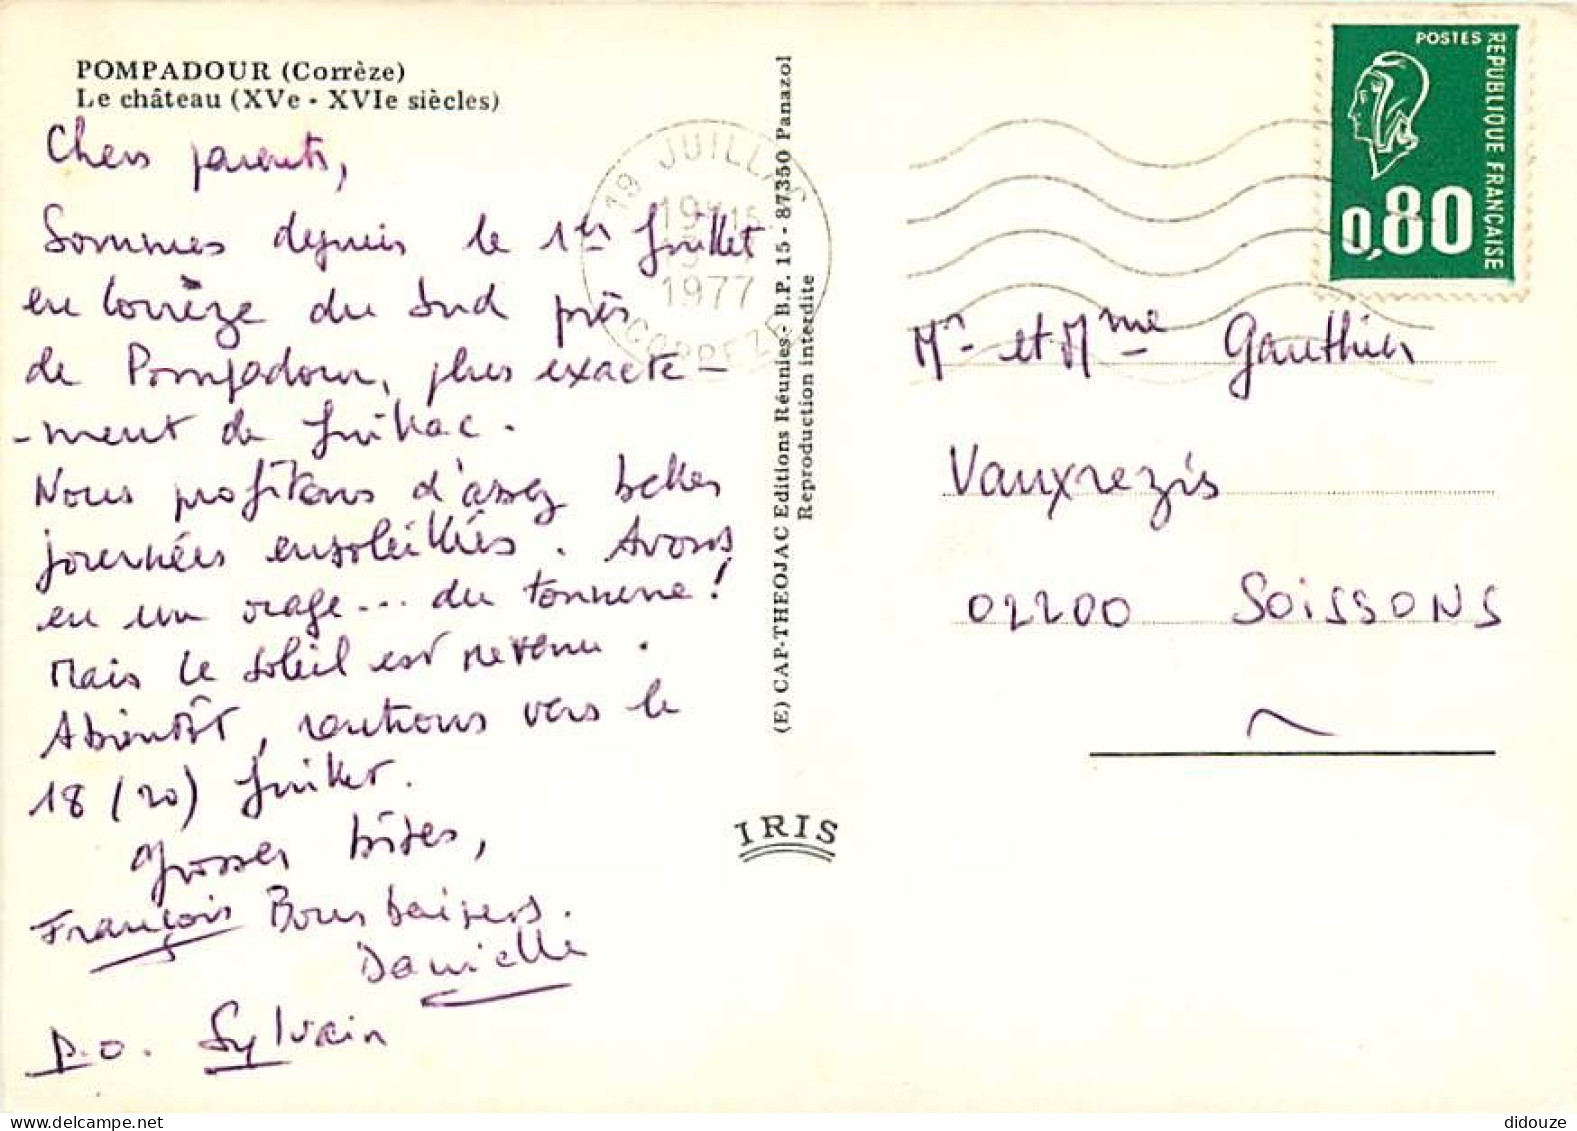 POMPADOUR (Corrèze)
Le château (XVe - XVIe siècles)
Chers parents,
Sommes depuis le 1er Juillet
en Corrèze du Sud près
de Pompadour, plus exacte-
-ment de Juillac.
Nous profitons d'assez belles
journées ensoleillées. Avons
eu un orage... du tonnerre!
Mais le soleil est revenu.
A bientôt, rentrons vers le
18 (20) Juillet.
Grosses bises,
François Bons baisers.
Danielle
P.O. Sylvain
(E) CAP-THEOJAC Editions Réunies - B.P. 15 - 87350 Panazol
Reproduction interdite
IRIS
19 JUILLAC
1977
CORREZE
POSTES
REPUBLIQUE FRANÇAISE
0,80
Mr et Mme Gauthier
Vauxrezis
02200 SOISSONS
delcampe.net
didouze